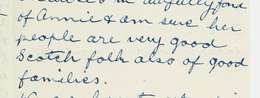 in awfully fond
of Annie & am sure her
people are very good
Scotch folk also of good
families.